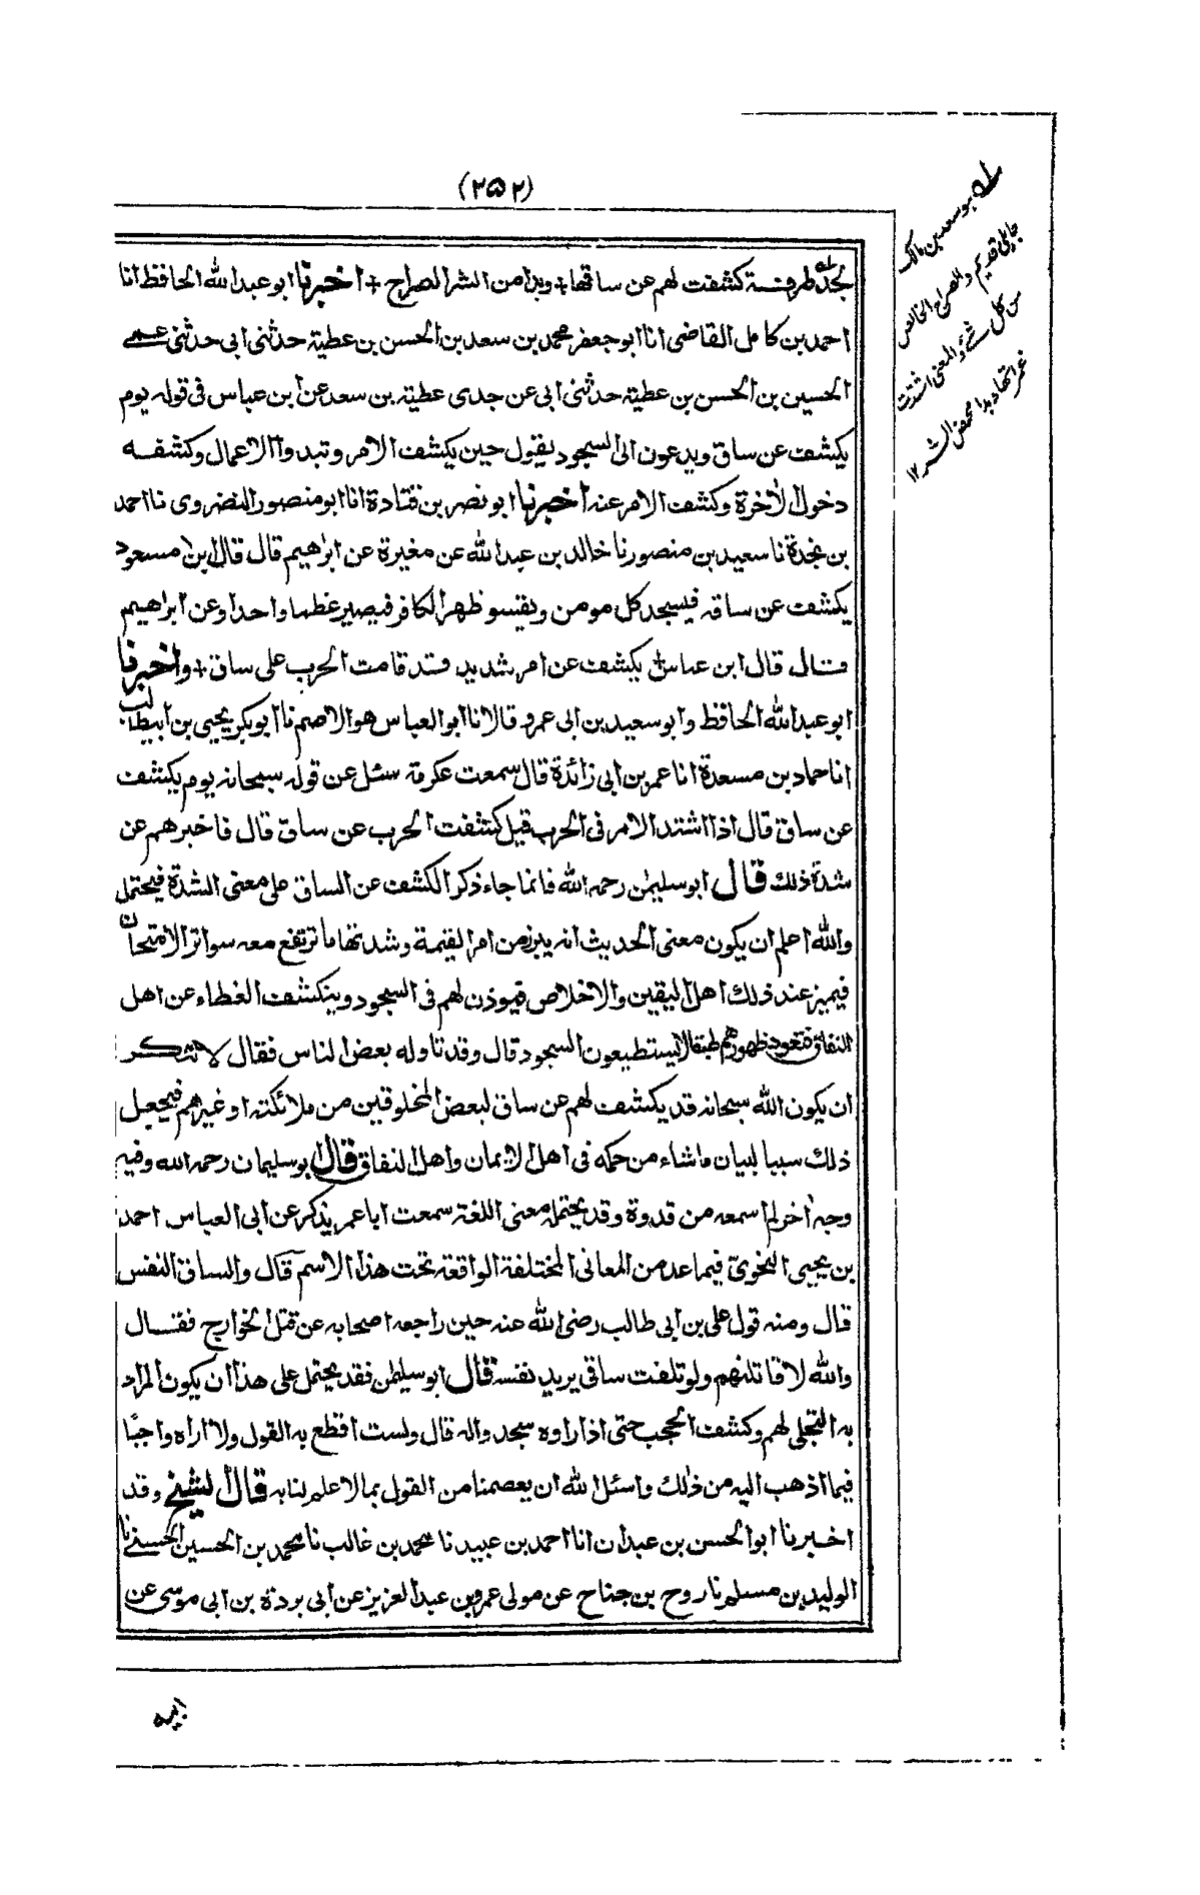 (٢٥٢)
لجد طرفة كشفت لهم عن ساقها + وبدا من الشر الصراح + اخبرنا ابو عبدالله الحافظ انا
احمد بن كامل القاضى انا ابو جعفر محمد بن سعد بن الحسن بن عطية حدثنى ابى حدثنى عمى
الحسين بن الحسن بن عطية حدثنى ابى عن جدى عطية بن سعد عن ابن عباس فى قوله يوم
يكشف عن ساق ويدعون الى السجود يقول حين يكشف الامر وتبدوا الاعمال وكشفه
دخول الاخرة وكشف الامر عنه اخبرنا ابو نصر بن قتادة انا ابو منصور النضروى نا احمد
بن نجدة نا سعيد بن منصور نا خالد بن عبدالله عن مغيرة عن ابراهيم قال قال ابن مسعود
يكشف عن ساقه فيسجد كل مومن ويقسو ظهر الكافر فيصير عظما واحدا وعن ابراهيم
قال قال ابن عباس يكشف عن امر شديد قد قامت الحرب على ساق + واخبرنا
ابو عبدالله الحافظ وابو سعيد بن ابى عمرو قالا نا ابو العباس هو الاصم نا ابو بكر يحيى بن ابيطالب
انا حماد بن مسعدة انا عمر بن ابى زائدة قال سمعت عكرمة سئل عن قوله سبحانه يوم يكشف
عن ساق قال اذا اشتد الامر فى الحرب قيل كشفت الحرب عن ساق قال فاخبرهم عن
شدة ذلك قال ابو سليمن رحمه الله فانما جاء ذكر الكشف عن الساق على معنى الشدة فيحتمل
والله اعلم ان يكون معنى الحديث انه يبرز من امر القيمة وشدتها ما ترتفع معه سواتر الامتحان
فيميز عند ذلك اهل اليقين والاخلاص فيوذن لهم فى السجود وينكشف الغطاء عن اهل
النفاق فتعود ظهورهم طبقا لا يستطيعون السجود قال وقد تاوله بعض الناس فقال لا ننكر
ان يكون الله سبحانه قد يكشف لهم عن ساق لبعض المخلوقين من ملائكته او غيرهم فيجعل
ذلك سببا لبيان ما شاء من حكمه فى اهل الايمان واهل النفاق قال ابو سليمان رحمه الله وفيه
وجه اخر لم اسمعه من قدوة وقد يحتمله معنى اللغة سمعت ابا عمر يذكر عن ابى العباس احمد
بن يحيى النحوى فيما عد من المعانى المختلفة الواقعة تحت هذا الاسم قال والساق النفس
قال ومنه قول على بن ابى طالب رضى الله عنه حين راجعه اصحابه عن قتل الخوارج فقال
والله لا قاتلنهم ولو تلفت ساقى يريد نفسه قال ابو سليمن فقد يحتمل على هذا ان يكون المراد
به التجلى لهم وكشف الحجب حتى اذا راوه سجدوا له قال ولست اقطع به القول ولا اراه واجبًا
فيما اذهب اليه من ذلك واسئل الله ان يعصمنا من القول بما لا علم لنا به قال الشيخ وقد
اخبرنا ابو الحسن بن عبدان انا احمد بن عبيد نا محمد بن غالب نا محمد بن الحسين الحسنى نا
الوليد بن مسلم نا روح بن جناح عن مولى عمر بن عبد العزيز عن ابى بردة بن ابى موسى عن
ابيه
له هو سعد بن مالك
جاهلى قديم والصراح الخالص
من كل شئ والمعنى اشتدت
بدا محض الشر ١٢